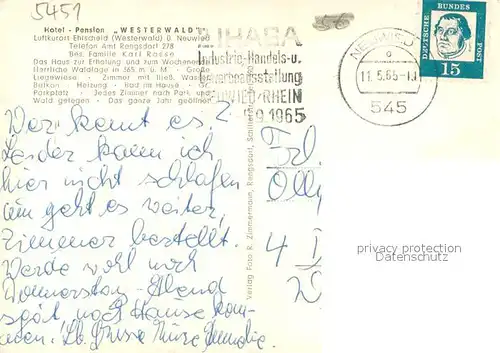 5451
Hotel - Pension „WESTERWALD"
Luftkurort Ehlscheid (Westerwald) ü. Neuwied
Telefon Amt Rengsdorf 278
Bes. Familie Karl Rosse
Das Haus zur Erholung und zum Wochenend
Herrliche Waldlage in 365 m ü. M. - Große
Liegewiese - Zimmer mit fließ. Wasser
Balkon - Heizung - Bad im Hause - Gr.
Parkplatz - Jedes Zimmer nach Park und
Wald gelegen - Das ganze Jahr geöffnet
LIHAGA
Industrie-, Handels-u.
Gewerbeausstellung
NEUWIED/RHEIN
9.1965
NEUWIED
11.5.65
545
DEUTSCHE BUNDES POST
15
Verlag Foto R. Zimmermann, Rengsdorf
kannt es
Leider kann ich
hier nicht schlafen
geht es weiter,
Zimmer bestellt.
Werde wohl noch
Donnerstag-Abend
spät nach Hause kom-
men. Lb. Grüsse Eure
Frl.
Olly
4
privacy protection
Datenschutz